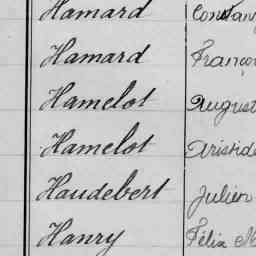 Hamard Constan
Hamard Franço
Hamelot August
Hamelot Aristide
Haudebert Julien
Hanry Félix M